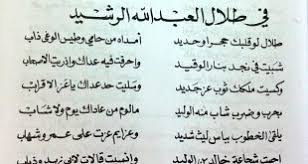 في طلال العبد الله الرشيد
طلال لو قلبك حجر او حديد أمداه من حامي وطيس الوغى ذاب
شبيت في نجد بنار الوقيد واحرقت فيه عداك واذريت الاصحاب
وكسيت متنك ثوب عز جديد وسلبت حد عداك ياعز الاقراب
بحرب وضرب شاب منه الوليد مالوم من عاداك يوم ولا شاب
يلقى الخطوب بباس ليث شديد وعزايم عزت على عمرو وشهاب
انست شجاعة خالد بن الوليد وانسيت قالات لابي زيد